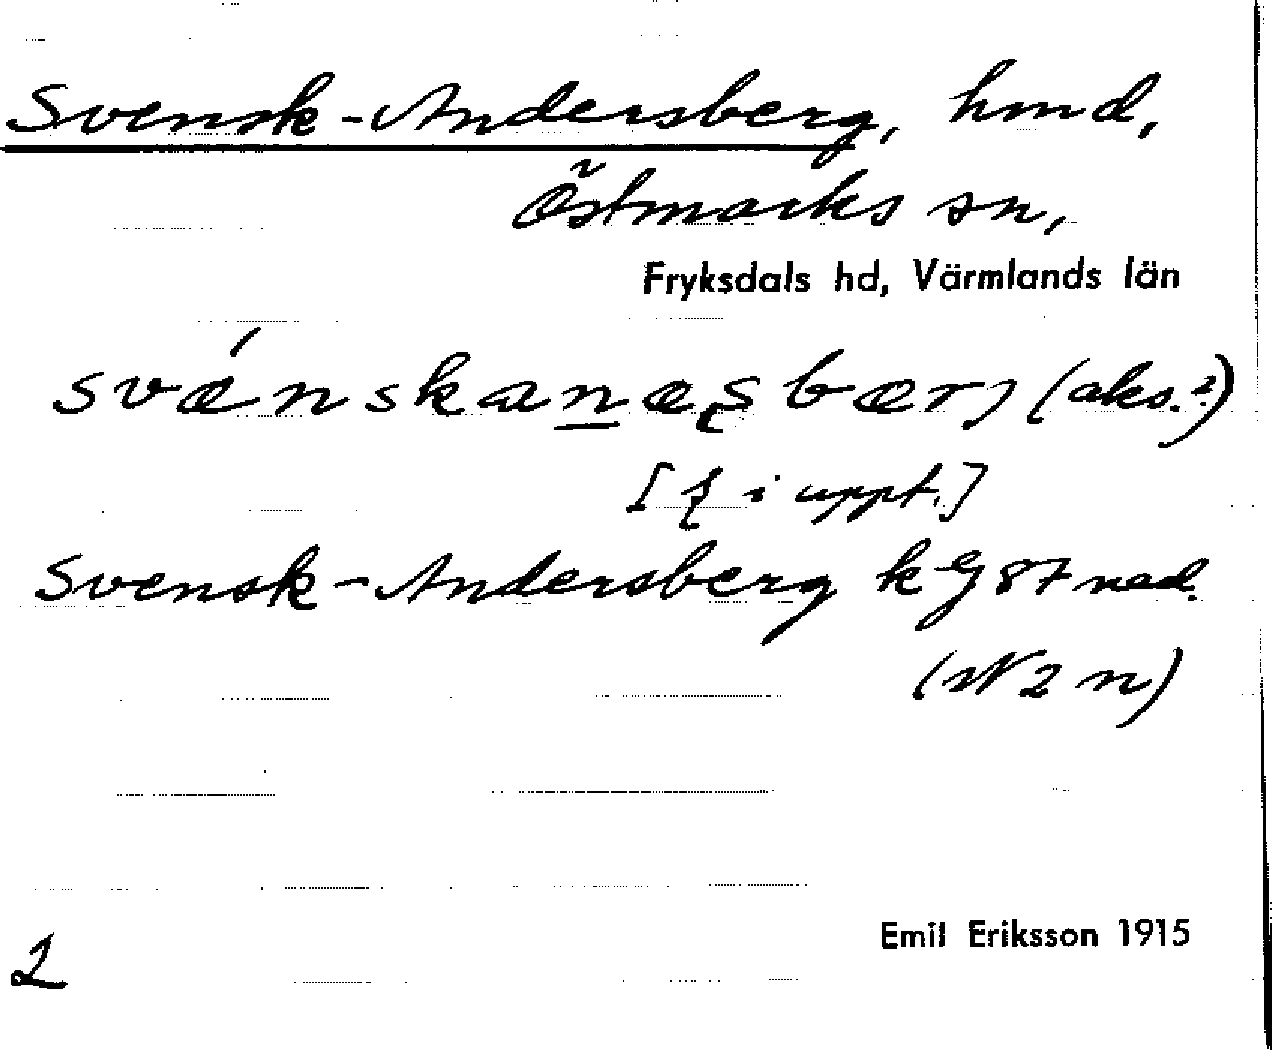 Svensk-Andersberg, hmd,
Östmarks sn,
Fryksdals hd, Värmlands län
svǽnskanæsbærj (aks. 2)
[ i uppt.]
Svensk-Andersberg k EJ 87 ned.
(W 2 n)
Emil Eriksson 1915
2